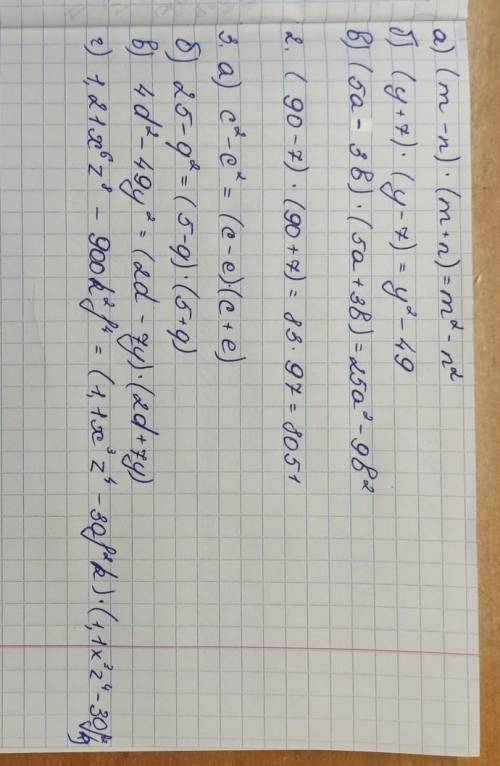 а) (m - n) · (m + n) = m² - n²
б) (y + 7) · (y - 7) = y² - 49
в) (5a - 3b) · (5a + 3b) = 25a² - 9b²
2. (90 - 7) · (90 + 7) = 83 · 97 = 8051
3. а) c² - c² = (c - e)(c + e)
б) 25 - g² = (5 - g) · (5 + g)
в) 4d² - 49y² = (2d - 7y) · (2d + 7y)
г) 1,21x⁶z⁸ - 900k²f⁴ = (1,1x³z⁴ - 30f²k) · (1,1x³z⁴ - 30f²k)